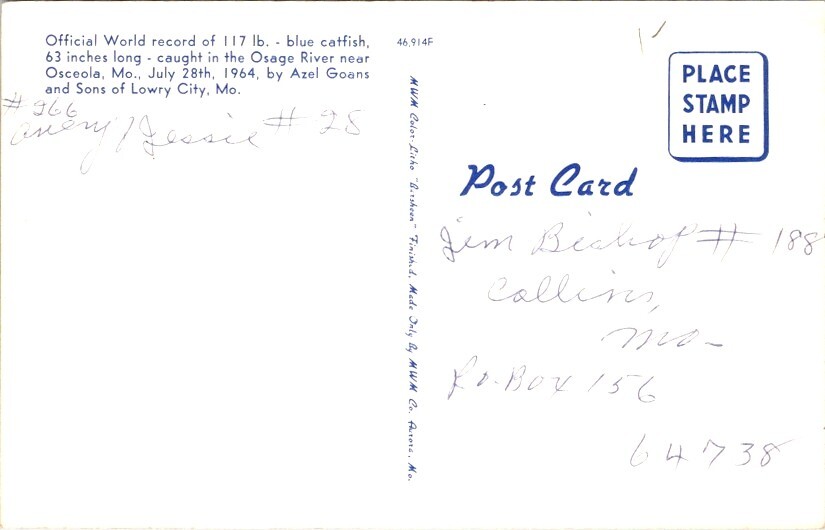 Official World record of 117 lb. - blue catfish,
63 inches long - caught in the Osage River near
Osceola, Mo., July 28th, 1964, by Azel Goans
and Sons of Lowry City, Mo.
#266
Avery / Jessie #28
46,914F
MWM Color-Litho "Aursheen" Finished, Made Only By MWM Co. Aurora, Mo.
PLACE
STAMP
HERE
Post Card
Jim Bishop # 188
Collins,
Mo-
P.O. Box 156
64738